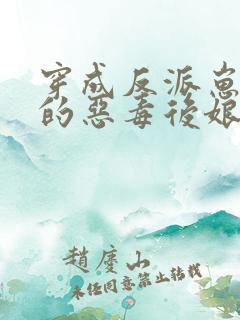 穿成反派崽
的惡毒後娘
趙慶山
未經同意禁止轉載